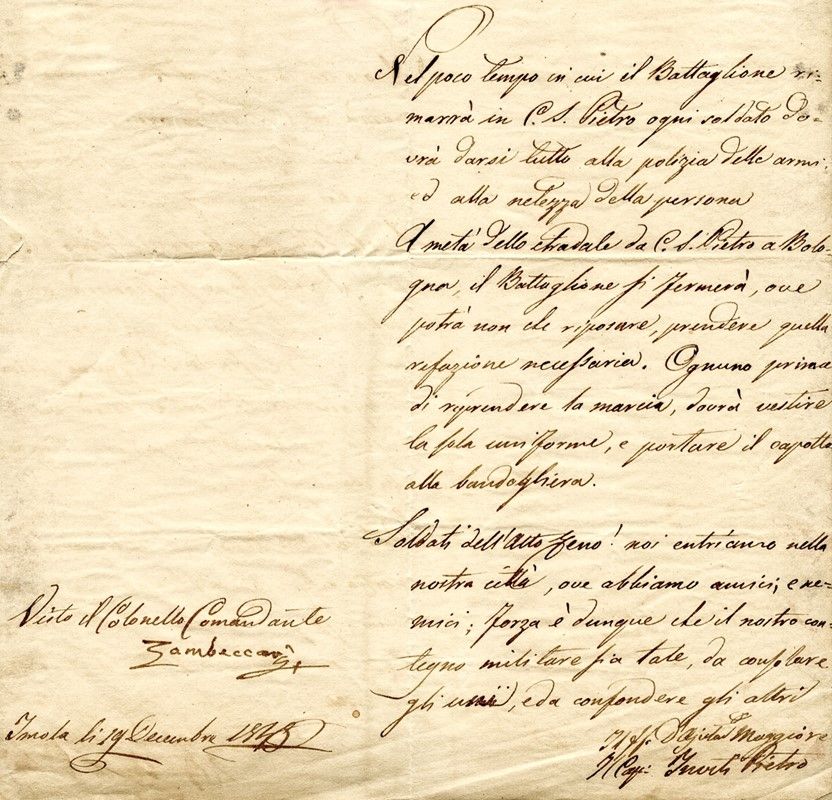 Nel poco tempo in cui il Battaglione ri=
marrà in C. S. Pietro ogni soldato do=
vrà darsi tutto alla polizia delle armi
ed alla netezza della persona
A metà dello stradale da C. S. Pietro a Bolo=
gna, il Battaglione si fermerà, ove
potrà non che riposare, prendere quella
refazione necessaria. Ognuno prima
di riprendere la marcia, dovrà vestire
la sola uniforme, e portare il capotto
alla bandogliera.
Soldati dell'Alto Reno! noi entriamo nella
nostra città, ove abbiamo amici, e ne=
mici; forza è dunque che il nostro con=
tegno militare sia tale, da consolare
gli uni, e da confondere gli altri
Visto il Colonello Comandante
Zambeccari
Imola li 19 Decembre 1848
Maggiore
Pietro